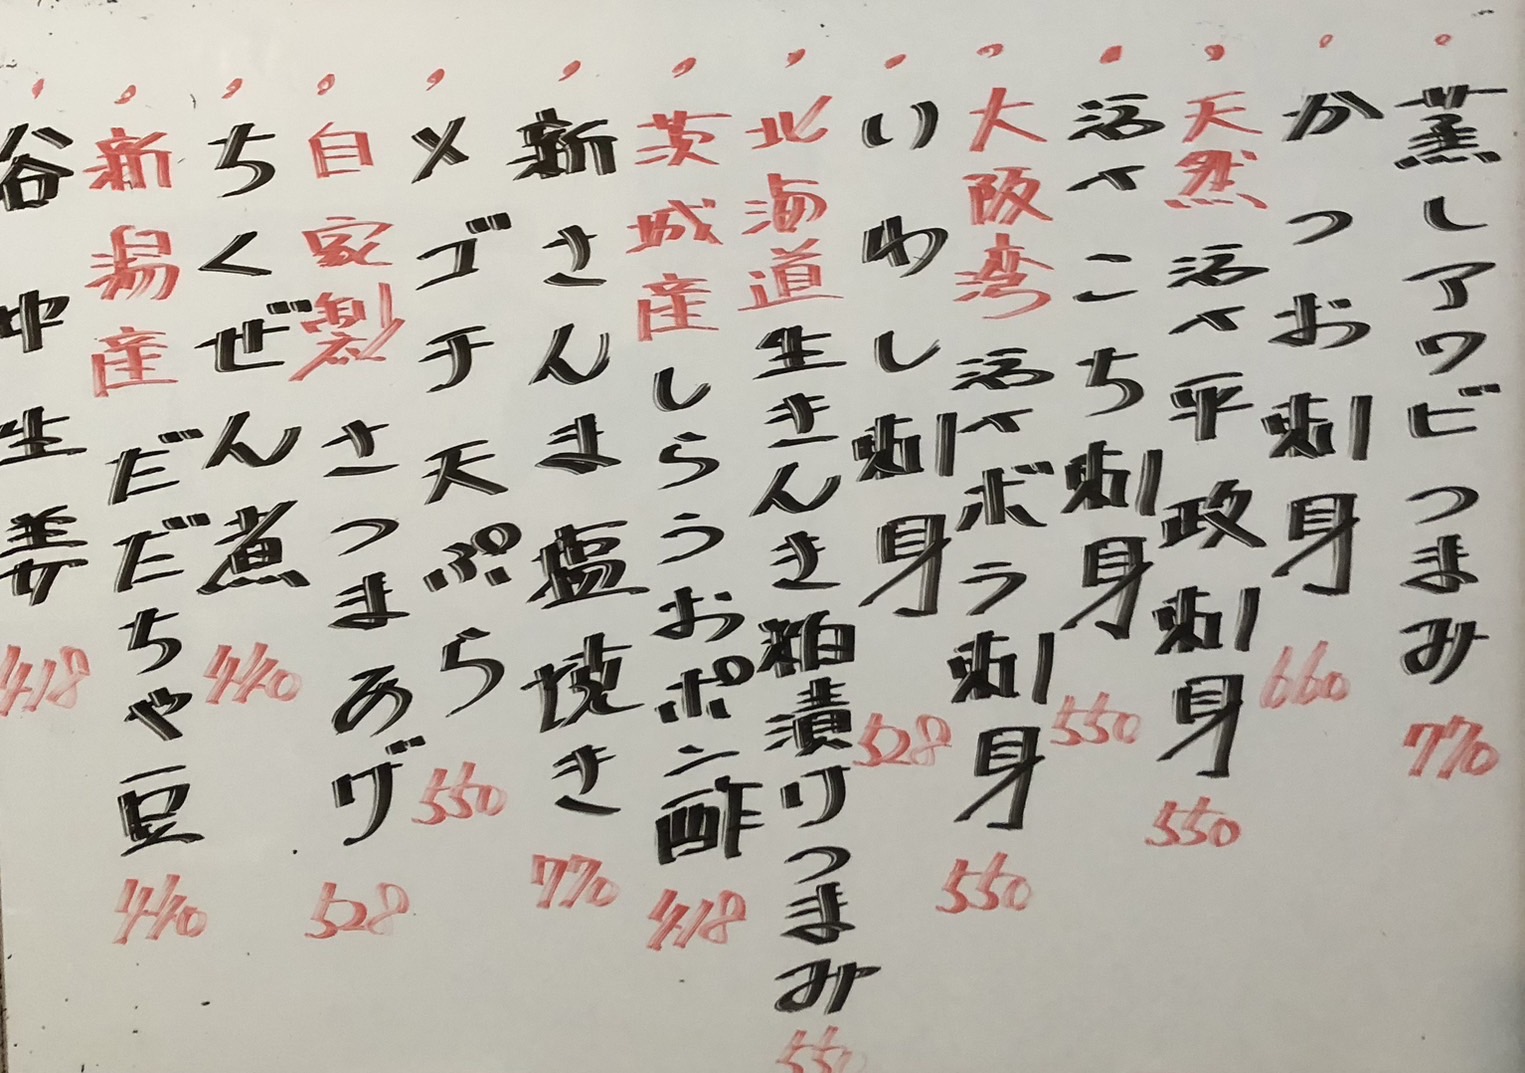 蒸しアワビつまみ 770
かつお刺身 660
天然 活〆平政刺身 550
活〆こち刺身 550
大阪湾 活〆ボラ刺身 550
いわし刺身 528
北海道生きんき粕漬けつまみ
茨城産しらうおポン酢 418
新さんま塩焼き 770
メゴチ天ぷら 550
自家製さつまあげ 528
ちくぜん煮 440
新潟産だだちゃ豆 440
谷中生姜 418